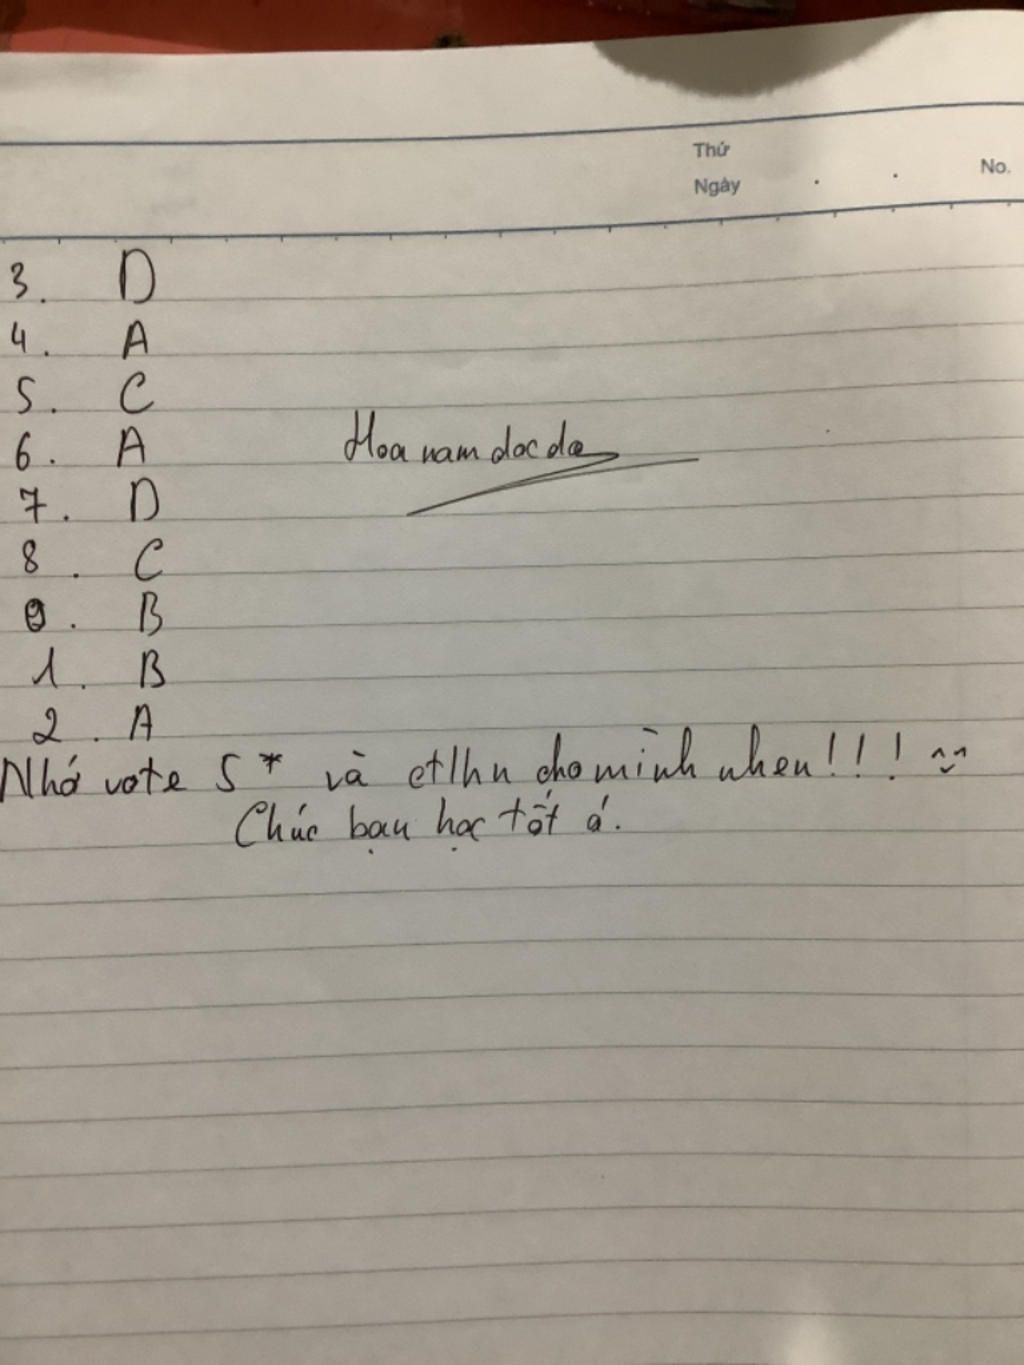 Thứ
Ngày . . No.
3. D
4. A
5. C
6. A Hoa nam doc da
7. D
8. C
9. B
1. B
2. A
Nhớ vote 5* và ctlhn cho mình nhen!!! ^~^
Chúc bạn học tốt á.